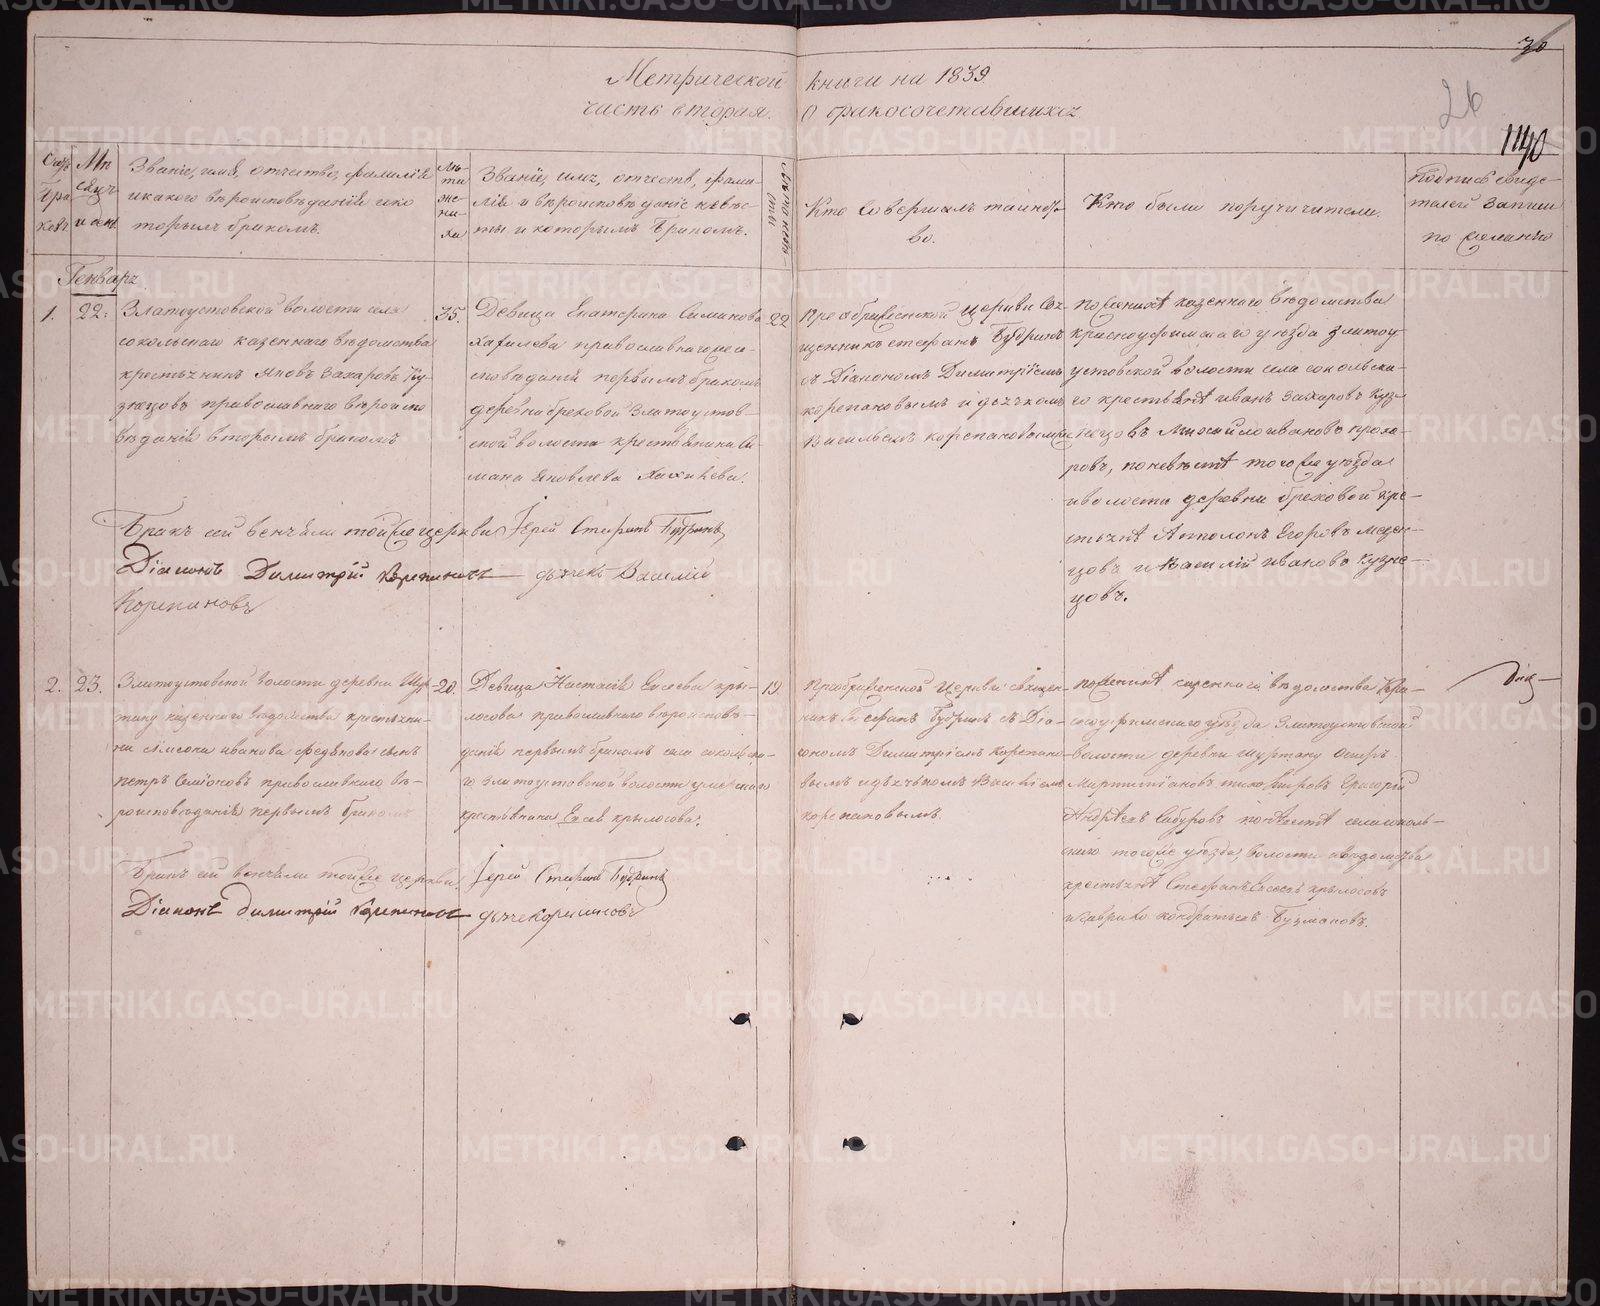 30
Метрической книги на 1839
часть вторая. О бракосочетавшихся
26
1140
Званіе, имя, отчество, фамилія
и какого вѣроисповѣданія и ко
торымъ бракомъ.
Лѣ-
та
же-
ни-
ха
Званіе, имя, отчеств, фами-
лія и вѣроисповѣданіе невѣс-
ты и которымъ бракомъ.
Кто совершалъ таинст-
во.
Кто были поручители.
Подпись свиде-
телей записи
по желанію
Генварь
1. 22. Златоустовской волости села
сокольскаго казеннаго вѣдомства
крестьянинъ Яковъ Захаровъ Ку-
знецовъ православнаго вѣроиспо
вѣданія вторымъ бракомъ
35.
Девица Екатерина Симанова
православнаго
первымъ бракомъ
деревни бреховой Златоустов-
ской волости крестьянина Си-
мана Яковлева
22
Преображенской церкви Свя-
щенникъ стефанъ Будринъ
съ Діакономъ Димитріемъ
корепановымъ и дьячкомъ
Васильемъ корепановымъ
По женихѣ казеннаго вѣдомства
красноуфимскаго уѣзда злато
устовской волости села сокольска-
го крестьянѣ иванъ Захаровъ Куз-
нецовъ Михайло ивановъ прохо-
ровъ, по невѣстѣ того же уѣзда
и волости деревни бреховой кре-
стьянѣ Апполонъ Егоровъ меден-
цовъ и василій ивановъ кузне-
цовъ.
Бракъ сей венчали той же церкви Іерей Стефанъ Будринъ
Діаконъ Димитрій Корепановъ дьячекъ Василій
Корепановъ
2. 23. Златоустовской волости деревни Шур
тану казеннаго вѣдомства крестьяни-
на иванова сынъ
петръ Семіоновъ православнаго вѣ-
роисповѣданія первымъ бракомъ
20.
Девица Настасія Елсеева кры-
лосова православнаго вѣроисповѣ-
данія первымъ бракомъ села сокольска-
го Златоустовской волости
крестьянина Елсея крылосова.
19.
Преображенской церкви священ-
никъ Стефанъ Будринъ съ Діа-
кономъ Димитріемъ корепано-
вымъ и дьячькомъ Васильемъ
корепановымъ.
по женихѣ казеннаго вѣдомства Кра-
сноуфимскаго уѣзда Златоустовской
волости деревни шуртану
Григорій
Андреевъ Сабуровъ по невѣстѣ села соколь-
скаго того же уѣзда, волости и вѣдомства
крестьянѣ Стефанъ Елсеевъ крылосовъ
и гаврило кондратьевъ Бузмаковъ.
Бракъ сей венчали той же церкви. Іерей Стефанъ Будринъ
Діаконъ димитрій Корепановъ
METRIKI.GASO-URAL.RU